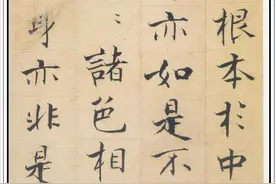 根本於中
亦如是不
〻諸色相
身亦非是